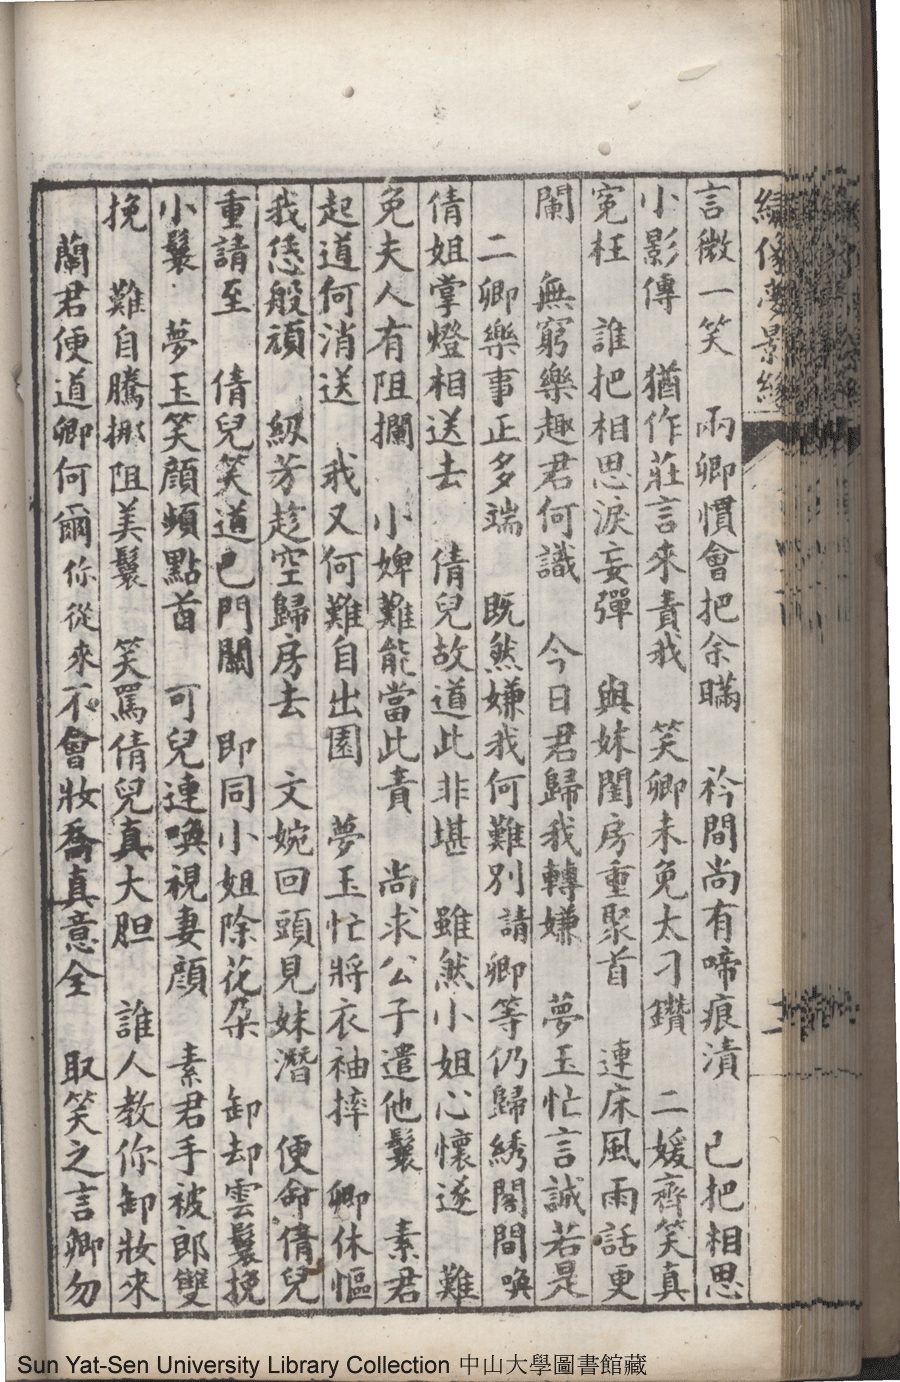 繡像夢景緣
言微一笑　兩卿慣會把余瞞　衿間尚有啼痕漬　已把相思
小影傳　猶作莊言來責我　笑卿未免太刁鑽　二媛齊笑真
寃枉　誰把相思淚妄彈　與妹閨房重聚首　連床風雨話更
闌　無窮樂趣君何識　今日君歸我轉嫌　夢玉忙言誠若是
二卿樂事正多端　既然嫌我何難別　請卿等仍歸綉閣間　喚
倩姐掌燈相送去　倩兒故道此非堪　雖然小姐心懷遂　難
免夫人有阻攔　小婢難能當此責　尚求公子遣他鬟　素君
起道何消送　我又何難自出園　夢玉忙將衣袖摔　卿休慪
我恁般頑　紉芳趁空歸房去　文婉回頭見妹潛　便命倩兒
重請至　倩兒笑道已門關　即同小姐除花朶　卸却雲鬟挽
小鬟　夢玉笑顔頻點首　可兒連喚視妻顔　素君手被郎雙
挽　難自騰挪阻美鬟　笑罵倩兒真大胆　誰人教你卸妝來
蘭君便道卿何爾　你從來不會妝喬真意全　取笑之言卿勿
十一
Sun Yat-Sen University Library Collection 中山大學圖書館藏